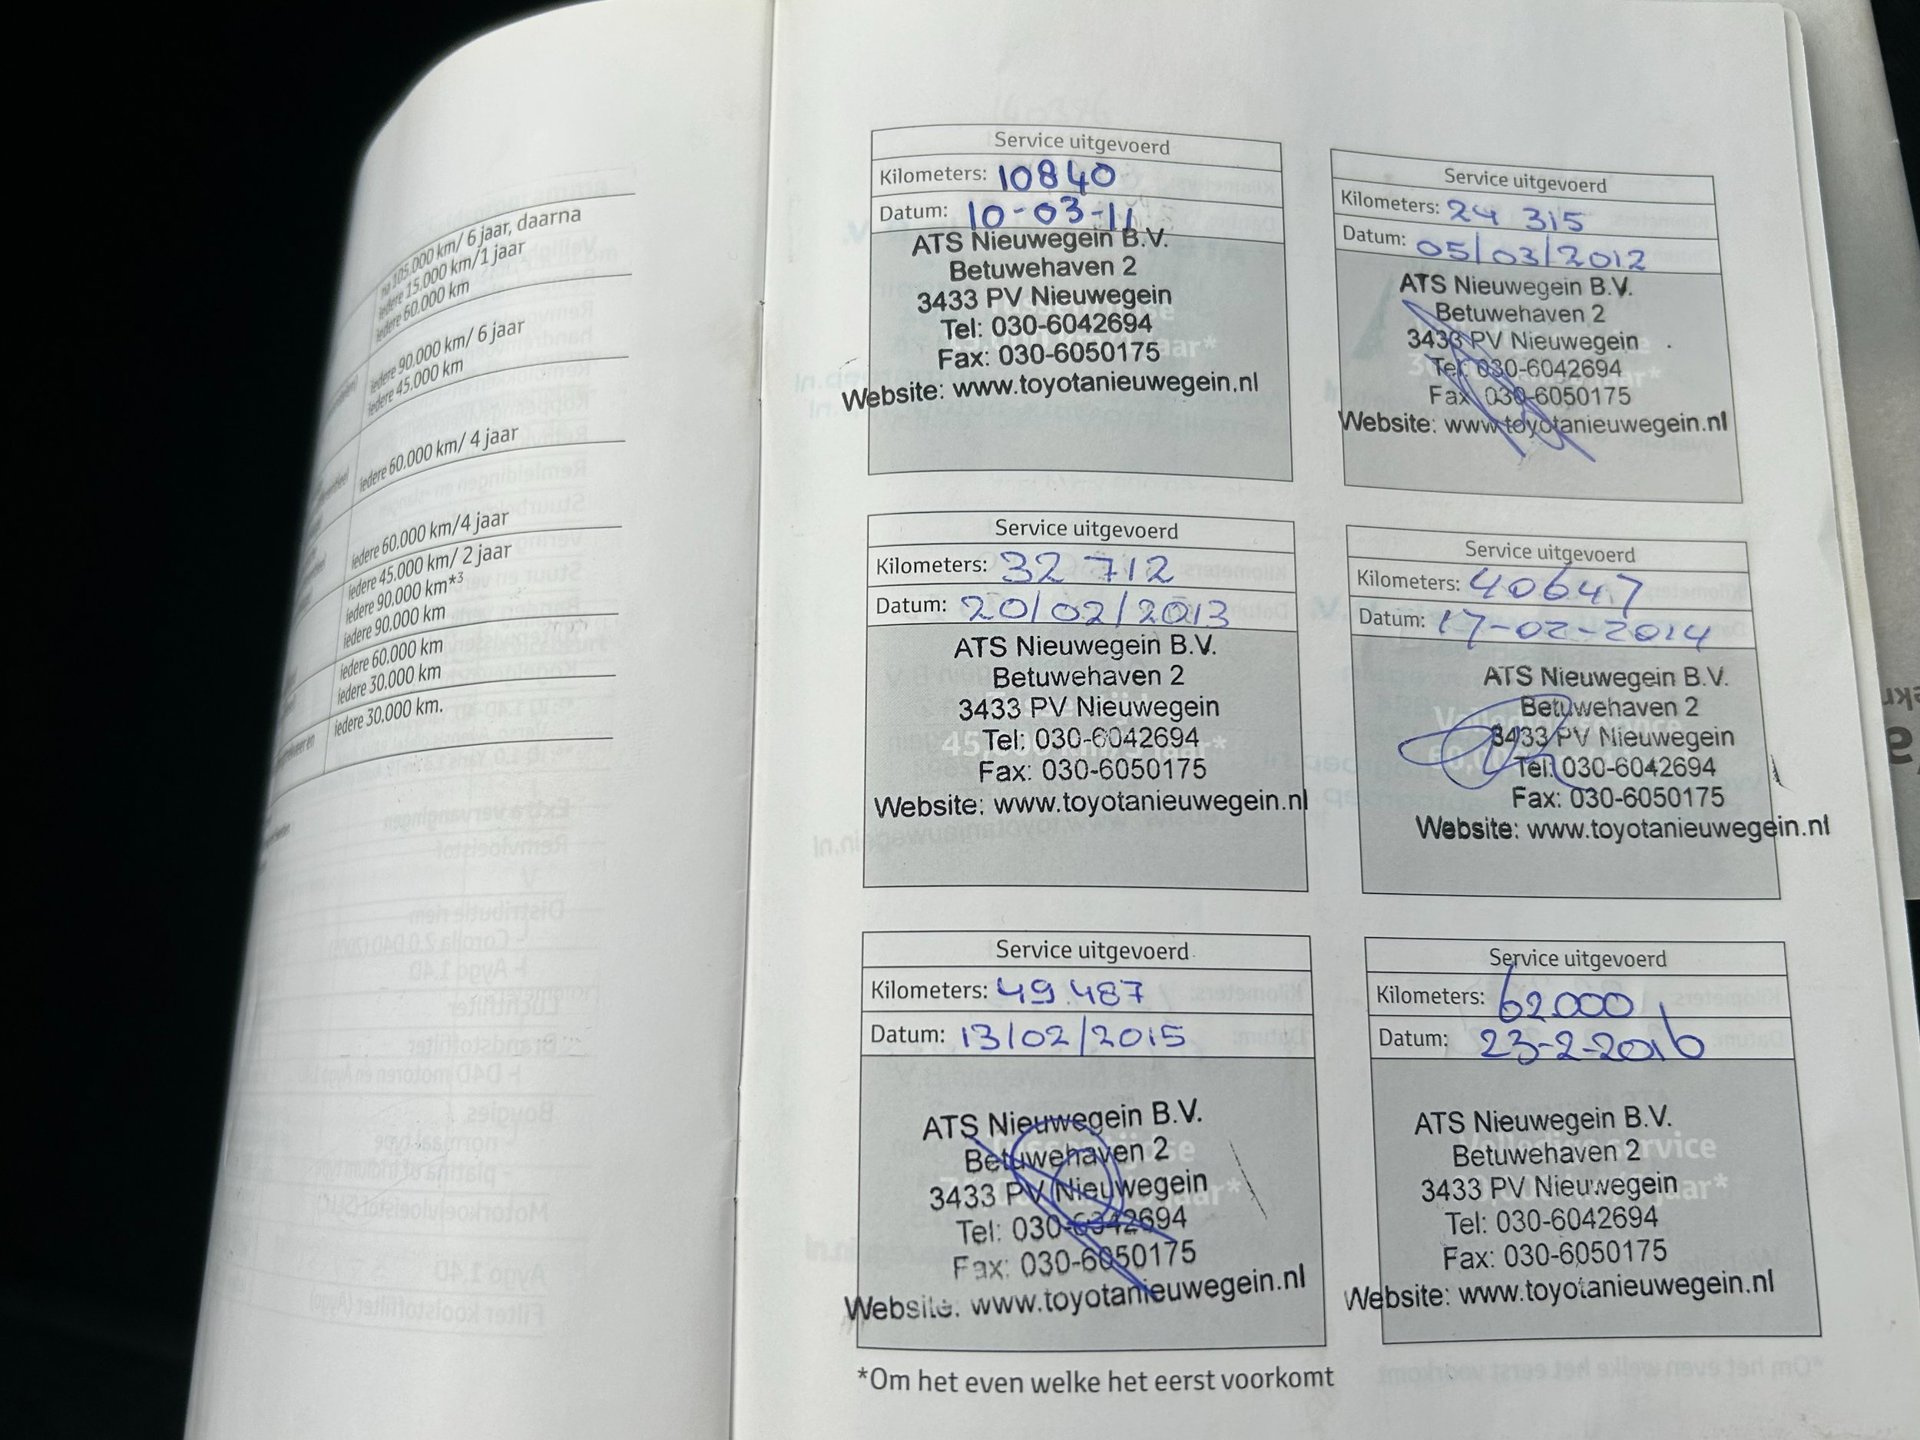 na 105.000 km/ 6 jaar, daarna
iedere 15.000 km/1 jaar
iedere 60.000 km
iedere 90.000 km/ 6 jaar
iedere 45.000 km
iedere 60.000 km/ 4 jaar
iedere 60.000 km/4 jaar
iedere 45.000 km/ 2 jaar
iedere 90.000 km*3
iedere 90.000 km
iedere 60.000 km
iedere 30.000 km
iedere 30.000 km.
Service uitgevoerd
Kilometers: 10840
Datum: 10-03-11
ATS Nieuwegein B.V.
Betuwehaven 2
3433 PV Nieuwegein
Tel: 030-6042694
Fax: 030-6050175
Website: www.toyotanieuwegein.nl
Service uitgevoerd
Kilometers: 24 315
Datum: 05/03/2012
ATS Nieuwegein B.V.
Betuwehaven 2
3433 PV Nieuwegein
Tel: 030-6042694
Fax 030-6050175
Website: www.toyotanieuwegein.nl
Service uitgevoerd
Kilometers: 32 712
Datum: 20/02/2013
ATS Nieuwegein B.V.
Betuwehaven 2
3433 PV Nieuwegein
Tel: 030-6042694
Fax: 030-6050175
Website: www.toyotanieuwegein.nl
Service uitgevoerd
Kilometers: 40647
Datum: 17-02-2014
ATS Nieuwegein B.V.
Betuwehaven 2
3433 PV Nieuwegein
Tel: 030-6042694
Fax: 030-6050175
Website: www.toyotanieuwegein.nl
Service uitgevoerd
Kilometers: 49.487
Datum: 13/02/2015
ATS Nieuwegein B.V.
Betuwehaven 2
3433 PV Nieuwegein
Tel: 030-6042694
Fax: 030-6050175
Website: www.toyotanieuwegein.nl
Service uitgevoerd
Kilometers: 62000
Datum: 23-2-2016
ATS Nieuwegein B.V.
Betuwehaven 2
3433 PV Nieuwegein
Tel: 030-6042694
Fax: 030-6050175
Website: www.toyotanieuwegein.nl
*Om het even welke het eerst voorkomt